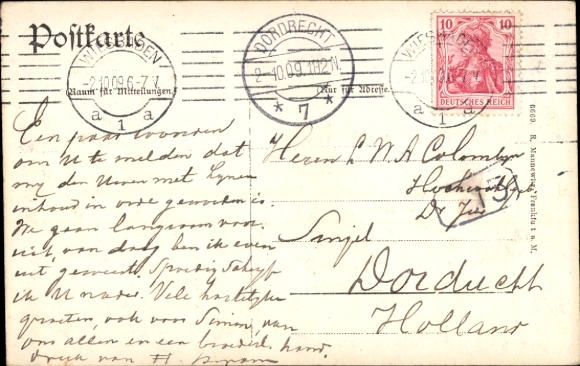 Postkarte
WIESBADEN
-2.10.09.6-7.V.
a 1 a
DORDRECHT
2-10.09.
* 7 *
WIESBADEN
a 1 a
10 10
DEUTSCHES REICH
(Raum für Mitteilungen.)
(Nur für Adresse.)
Een paar woorden
om U te melden dat
mij den Uwen met
inhoud in orde geworden is.
We gaan langzaam voor-
uit, van daag ben ik even
uit geweest. Spoedig schrijf
ik U nader. Vele hartelijke
groeten, ook voor Simon, van
ons allen en een broederl. hand-
druk van H.
Heeren L W A Colombijn
Singel
Dordrecht
Holland
6669. R. Mannewitz, Frankfurt a. M.